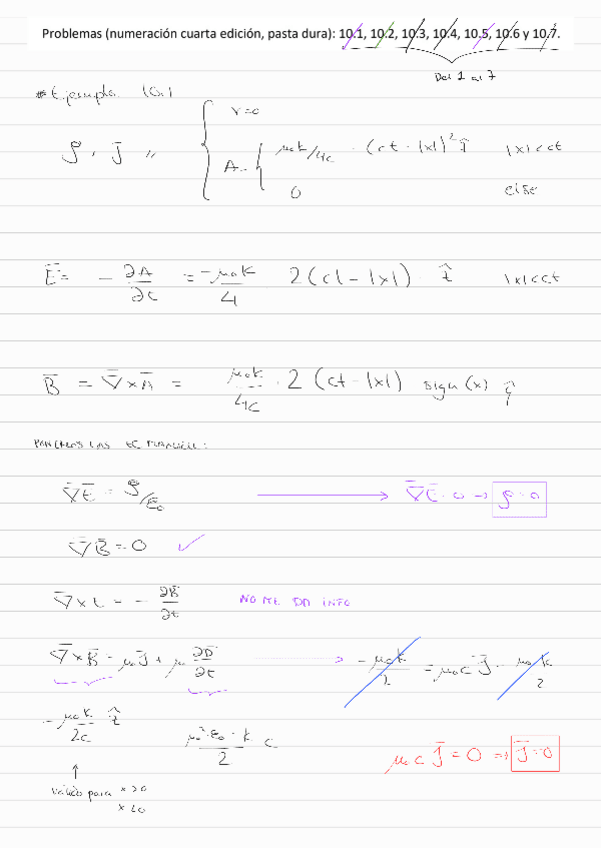 Problemas (numeración cuarta edición, pasta dura): 10.1, 10.2, 10.3, 10.4, 10.5, 10.6 y 10.7.
Del 1 al 7
# Ejemplo 10.1
V=0
ρ, J̄ ,, A= μ₀k/4c · (ct - |x|)² ẑ |x|<ct
0 else
Ē = - ∂A/∂t = -μ₀k/4 2(ct - |x|) · ẑ |x|<ct
B̄ = ∇̄×Ā = μ₀k/4c · 2 (ct - |x|) sign (x) ŷ
∇̄Ē = ρ/ε₀ → ∇̄Ē=0 → ρ=0
∇̄B̄=0 ✓
∇̄×Ē = - ∂B̄/∂t NO ME DA INFO
∇̄×B̄ = μ₀J̄ + μ₀ ∂D̄/∂t → -μ₀k/2 = μ₀c J̄ - μ₀k/2
-μ₀k/2c ẑ μ₀²·ε₀·k/2 c μ₀ c J̄ = 0 ⇒ J̄=0
↑
válido para x>0
x<0